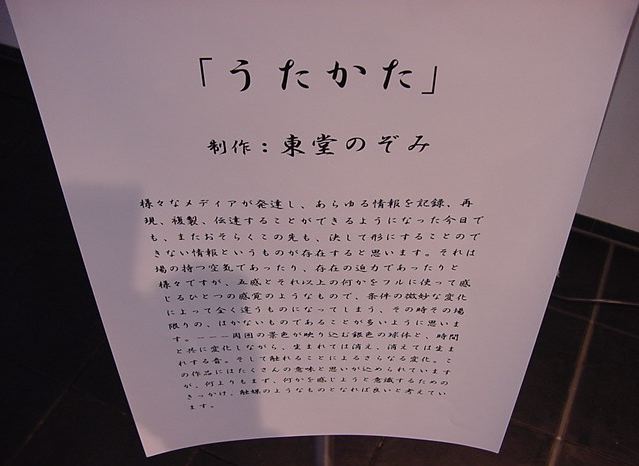 「うたかた」
制作：東堂のぞみ
様々なメディアが発達し、あらゆる情報を記録、再
現、複製、伝達することができるようになった今日で
も、またおそらくこの先も、決して形にすることので
きない情報というものが存在すると思います。それは
場の持つ空気であったり、存在の迫力であったりと
様々ですが、五感とそれ以上の何かをフルに使って感
じるひとつの感覚のようなもので、条件の微妙な変化
によって全く違うものになってしまう、その時その場
限りの、はかないものであることが多いように思いま
す。ーーー周囲の景色が映り込む銀色の球体と、時間
と共に変化しながら、生まれては消え、消えては生ま
れする音。そして触れることによるさらなる変化。こ
の作品にはたくさんの意味と思いが込められています
が、何よりもまず、何かを感じようと意識するための
きっかけ、触媒のようなものとなれば良いと考えてい
ます。